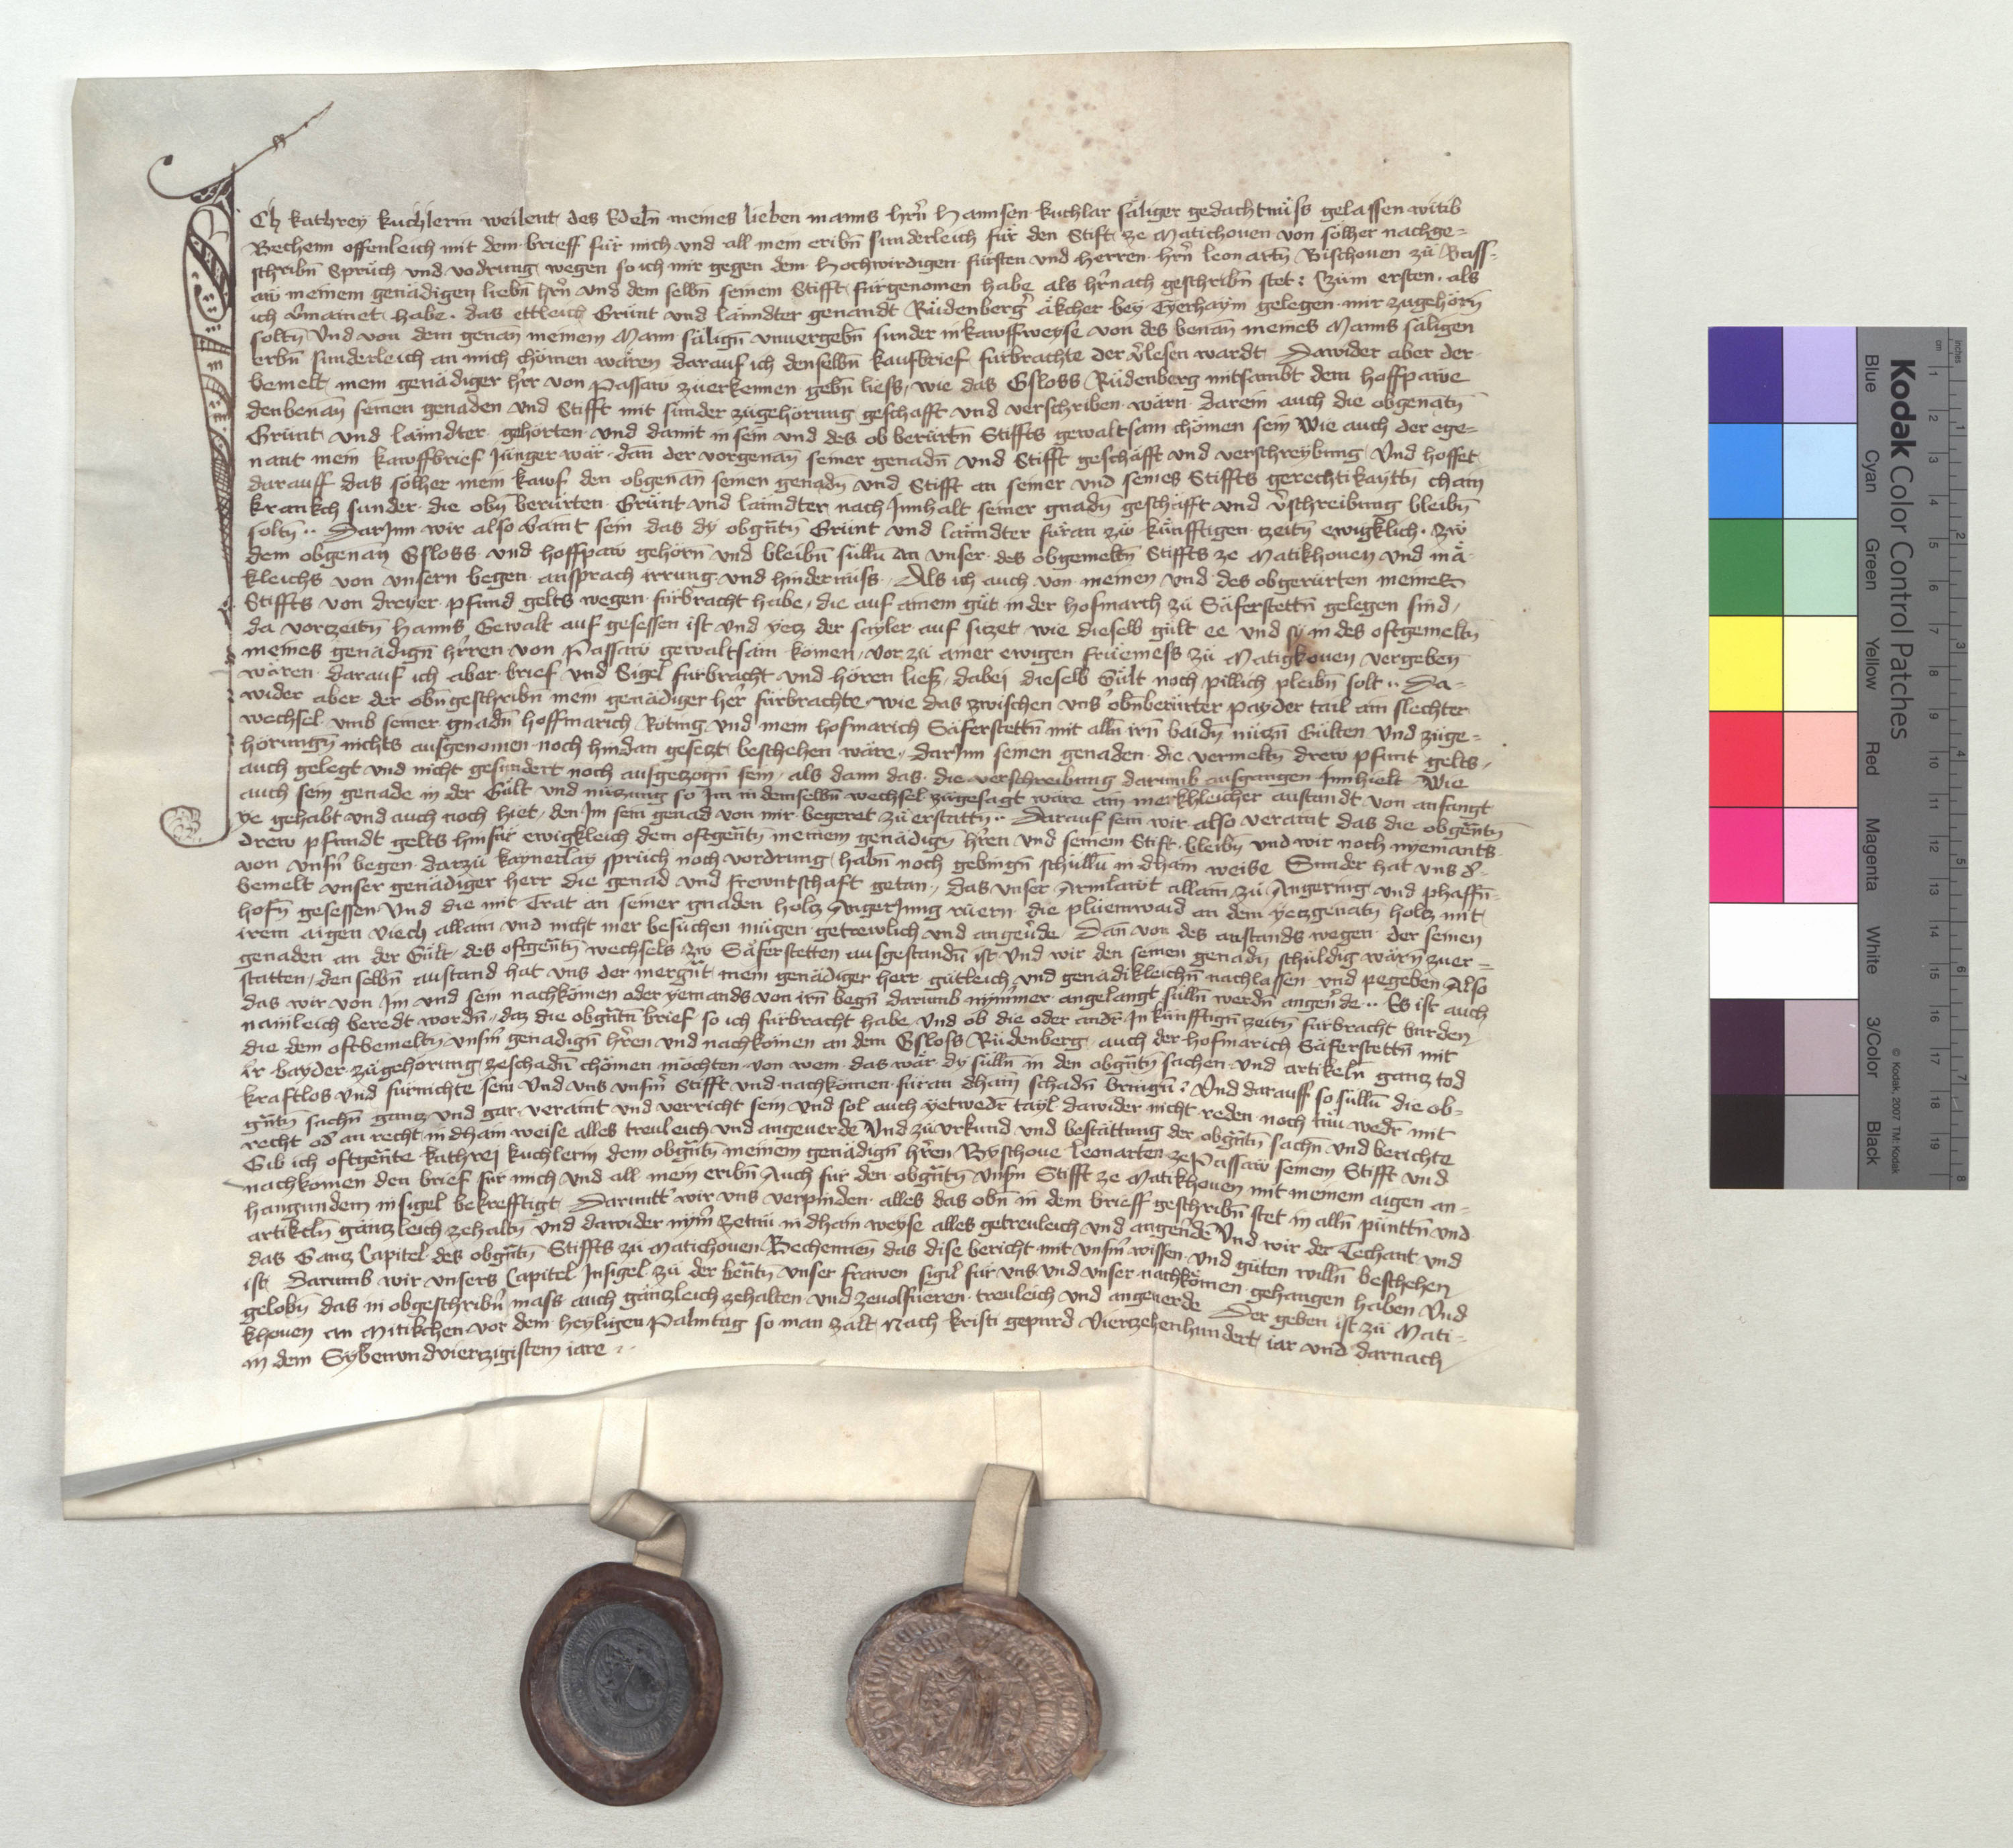 Ich kathrey kuchlerin weilent des Edeln meines lieben manns hr̄n Hannsen kuchlar säliger gedachtnüss gelassen witib
Bechenn offenleich mit dem brieff für mich und all mein eribn̄ sunderleich für den Stift ze Matichouen von sölher nachge=
schribn̄ Sprüch und vodrung wegen so ich mir gegen dem Hochwirdigen fürsten und herren hr̄n leonartn̄ Bischouen zu Bass=
aw meinem genädigen liebn̄ hr̄n und dem selbn̄ seinem Stifft fürgenomen habe als hr̄nach geschribn̄ stet: Czum ersten als
ich v̄mainet habe das ettleich Grünt und länndter genandt Rüdenberg̉ äkcher bey Eyerhaym gelegen mir zugehörn̄
soltn̄ Und von dem genan̄ meinem Mann sälign̄ unuergebn̄ sunder in kawffweyse von des benan̄ meines Manns säligen
erbn̄ sunderleich an mich chömen wären darauf ich denselbn̄ kaufbrief fürbrachte der v̉lesen wardt Dawider aber der
bemelt mein genädiger hr̉r von Passaw zuerkennen gebn̄ liess, wie das Gsloss Rüdenberg mitsambt dem hoffpawe
denbenan̄ seinen genaden und Stifft mit sunder zugehörung geschafft und verschriben wärn darein auch die obgenatn̄
Grünt und länndter gehörten und damit in sein und des ob berürtn̄ Stiffts gewaltsam chömen sein Wie auch der ege=
nant mein kawffbrief Jünger wär dan̄ der vorgenan̄ seiner genadn̄ und Stifft geschäfft und verschreybung Und hoffet
darauff das sölher mein kawf den obgenan̄ seinen genadn̄ und Stifft an seiner und seines Stiffts gerechtikaytn̄ chain
krankch sunder die obn̄ berürten Grünt und länndter nach Innhalt seiner gnadn̄ geschäfft und v̉schreibung bleibn̄
soltn̄ .. DarInn wir also v̉aint sein das dy obgn̄tn̄ Grünt und länndter füran zw künfftigen zeitn̄ ewigklich zw
dem obgenan̄ Gsloss und hoffpaw gehörn̄ und bleibn̄ süllu̅ an unser des obgemeltn̄ Stiffts ze Matikhouen und mä=
kleichs von unsern begen ansprach irrung und hindernüss Als ich auch von meinen und des obgerürten meines
Stiffts von dreyer pfund gelts wegen fürbracht habe, die auf ainem güt in der hofmarch zu Säferstettn̄ gelegen sind,
da vorzeitn̄ Hanns Gewalt auf gesessen ist und yetz der sayler auf sitzet, wie dieselb gült ee und sy in des oftgemeltn̄
meines genädign̄ hr̉ren von Passaw gewaltsam komen, vor zu ainer ewigen früemess zu Matigkouen vergeben
wären darauf ich aber brief und Sigel̄ fürbracht und hören liess, dabei dieselb Gült noch pillich pleibn̄ solt .. Da=
wider aber der obn̄geschribn̄ mein genädiger her̉ fürbrachte, wie das zwischen uns̉ obn̄berürter payder tail ain slechter
wechsel umb seiner gnadn̄ hoffmarich Röting und mein hofmarich Säferstettn̄ mit alln̄ irn̄ baidn̄ nützn̄ Gülten Und zuge=
hörungn̄ nichts ausgenomen noch hindan gesetzt beschehen wäre, DarInn seinen genaden die vermeltn̄ drew pfunt gelts,
auch gelegt und nicht gesundert noch ausgezogn̄ sein, als dann das die verschreibung darumb ausgangen Innhielt Wie
auch sein genade in der Gült und nutzung so Im in demselbn̄ wechsel zugesagt wäre ain merkhleicher austandt von anfangt
ye gehabt und auch noch hiet, den Im sein genad von mir begeret zu erstattn̄ .. Darauf sein wir also veraint das die obgn̄tn̄
drew pfundt gelts hinfür ewigkleich dem oftgn̄tn̄ meinem genädign̄ hr̉ren und seinem Stift bleibn̄ und wir noch nyemants
von unsr̄n begen darzu kaynerlay sprüch noch vordrung habn̄ noch gebingn̄ schüllu̅ in dhain weise Sunder hat uns d̉
bemelt unser genädiger herr die genad und frewntschaft getan, das unser Armlawt allain zu Angering und phaffn̄=
hofn̄ gesessen Und die mit Trat an seiner gnaden holtz AngerJung rüern die plüemwaid an dem yetzgenatn̄ holtz mit
irem aigen viech allain und nicht mer besüchen mügen getrewlich und angeu̅de Dan̄ von des anstands wegen der seinen
genaden an der Gült des oftgn̄tn̄ wechsels zw Säferstetten ausgestandn̄ ist Und wir den seinen genadn̄ schuldig wärn̄ zuer=
statten, denselbn̄ austand hat uns der mergn̄t mein genädiger herr gütleich und genädikleichn̄ nachlassen und pegeben Also
das wir von Im und sein nachkömen oder yemands von irn̄ begn̄ darumb nymmer angelangt sülln̄ werdn̄ angeu̅de .. Es ist auch
nämleich beredt wordn̄, daz die obgn̄tn̄ brief so ich fürbracht habe Und ob die oder andr̉ In künfftign̄ zeitn̄ fürbracht burden
die dem oftbemeltn̄ unsr̄m genadign̄ hr̉ren und nachkömen an dem Gsloss Rüdenberg auch der hofmarich Säferstettn̄ mit
ir bayder zugehörung zeschadn̄ chömen möchten von wem das wär dy sülln̄ in den obgn̄tn̄ sachen und artikeln̄ gantz tod
kraftlos und fürnichte sein Und uns unsr̄m Stifft und nachkömen füran dhain̄ schadn̄ bringn̄: Und darauff so süllu̅ die ob=
gn̄tn̄ sachn̄ gantz und gar veraint und verricht sein und sol auch yetwedr̉ tayl dawider nicht reden noch tün wedr̉ mit
recht od̉ an recht in dhain weise alles treuleich und angeuerde Und zu urkund und bestättung der obgn̄tn̄ sachn̄ und berichte
Gib ich oftgn̄te kathrej kuchlerin dem obgn̄tn̄ meinem genädign̄ hr̉ren Byschoue leonarten ze Passaw seinem Stifft und
nachkomen den brief für mich und all mein eribn̄ Auch für den obgn̄tn̄ Unsr̄n Stifft ze Matikhouen mit meinem aigen an=
hangundem insigel bekrefftigt Darunt̉ wir uns verpinden alles das obn̄ in dem brieff geschribn̄ stet in alln̄ pünttn̄ und
artikeln̄ gäntzleich zehaltn̄ und dawider nym̉ zetün in dhain weyse alles getreuleich und angeu̅de Und wir der Techant und
das Gantz Capitel des obgn̄tn̄ Stiffts zu Matichouen Bechennen̄ das dise bericht mit unsr̄m wissen und güten willn̄ beschehen
ist Darumb wir unsers Capitel Insigel zu der ben̄tn̄ unser frawen sigil̉ für uns und unser nachkömen gehangen haben Und
gelobn̄ das in obgeschribn̉ mass auch gäntzleich zehalten und zeuolfüeren treuleich und angeuerde Der geben ist zu Mati=
khouen An Mitikchen vor dem heyligen Palmtag so man zalt Nach kristi gepurd Viertzehenhundert iar und darnach
in dem Sybenundvierzigistem iare ..
Kodak Color Control Patches
Blue Cyan Green Yellow Red Magenta White 3/Color Black
© Kodak, 2007 TM: Kodak
inches 1 2 3 4 5 6 7 8
cm 1 2 3 4 5 6 7 8 9 10 11 12 13 14 15 16 17 18 19